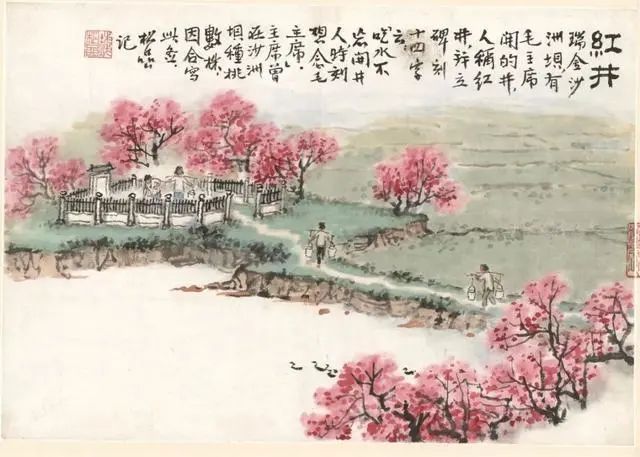 紅井
瑞金沙
洲垻有
毛主席
開的井
人稱紅
井并立
碑刻
十四字
云
吃水不
忘開井
人時刻
想念毛
主席
主席曾
在沙洲
垻種桃
數株
因合寫
此意
松岩
記